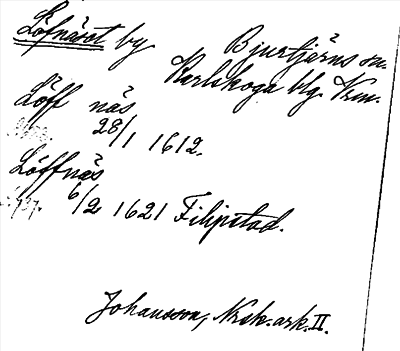 Löfnäset by
Bjurtjärns sn.
Karlskoga blg. Vrm.
Löff näs
28/1 1612.
Löffnäs
6/2 1621 Filipstad.
Johansson, Nrsk. ark. II.